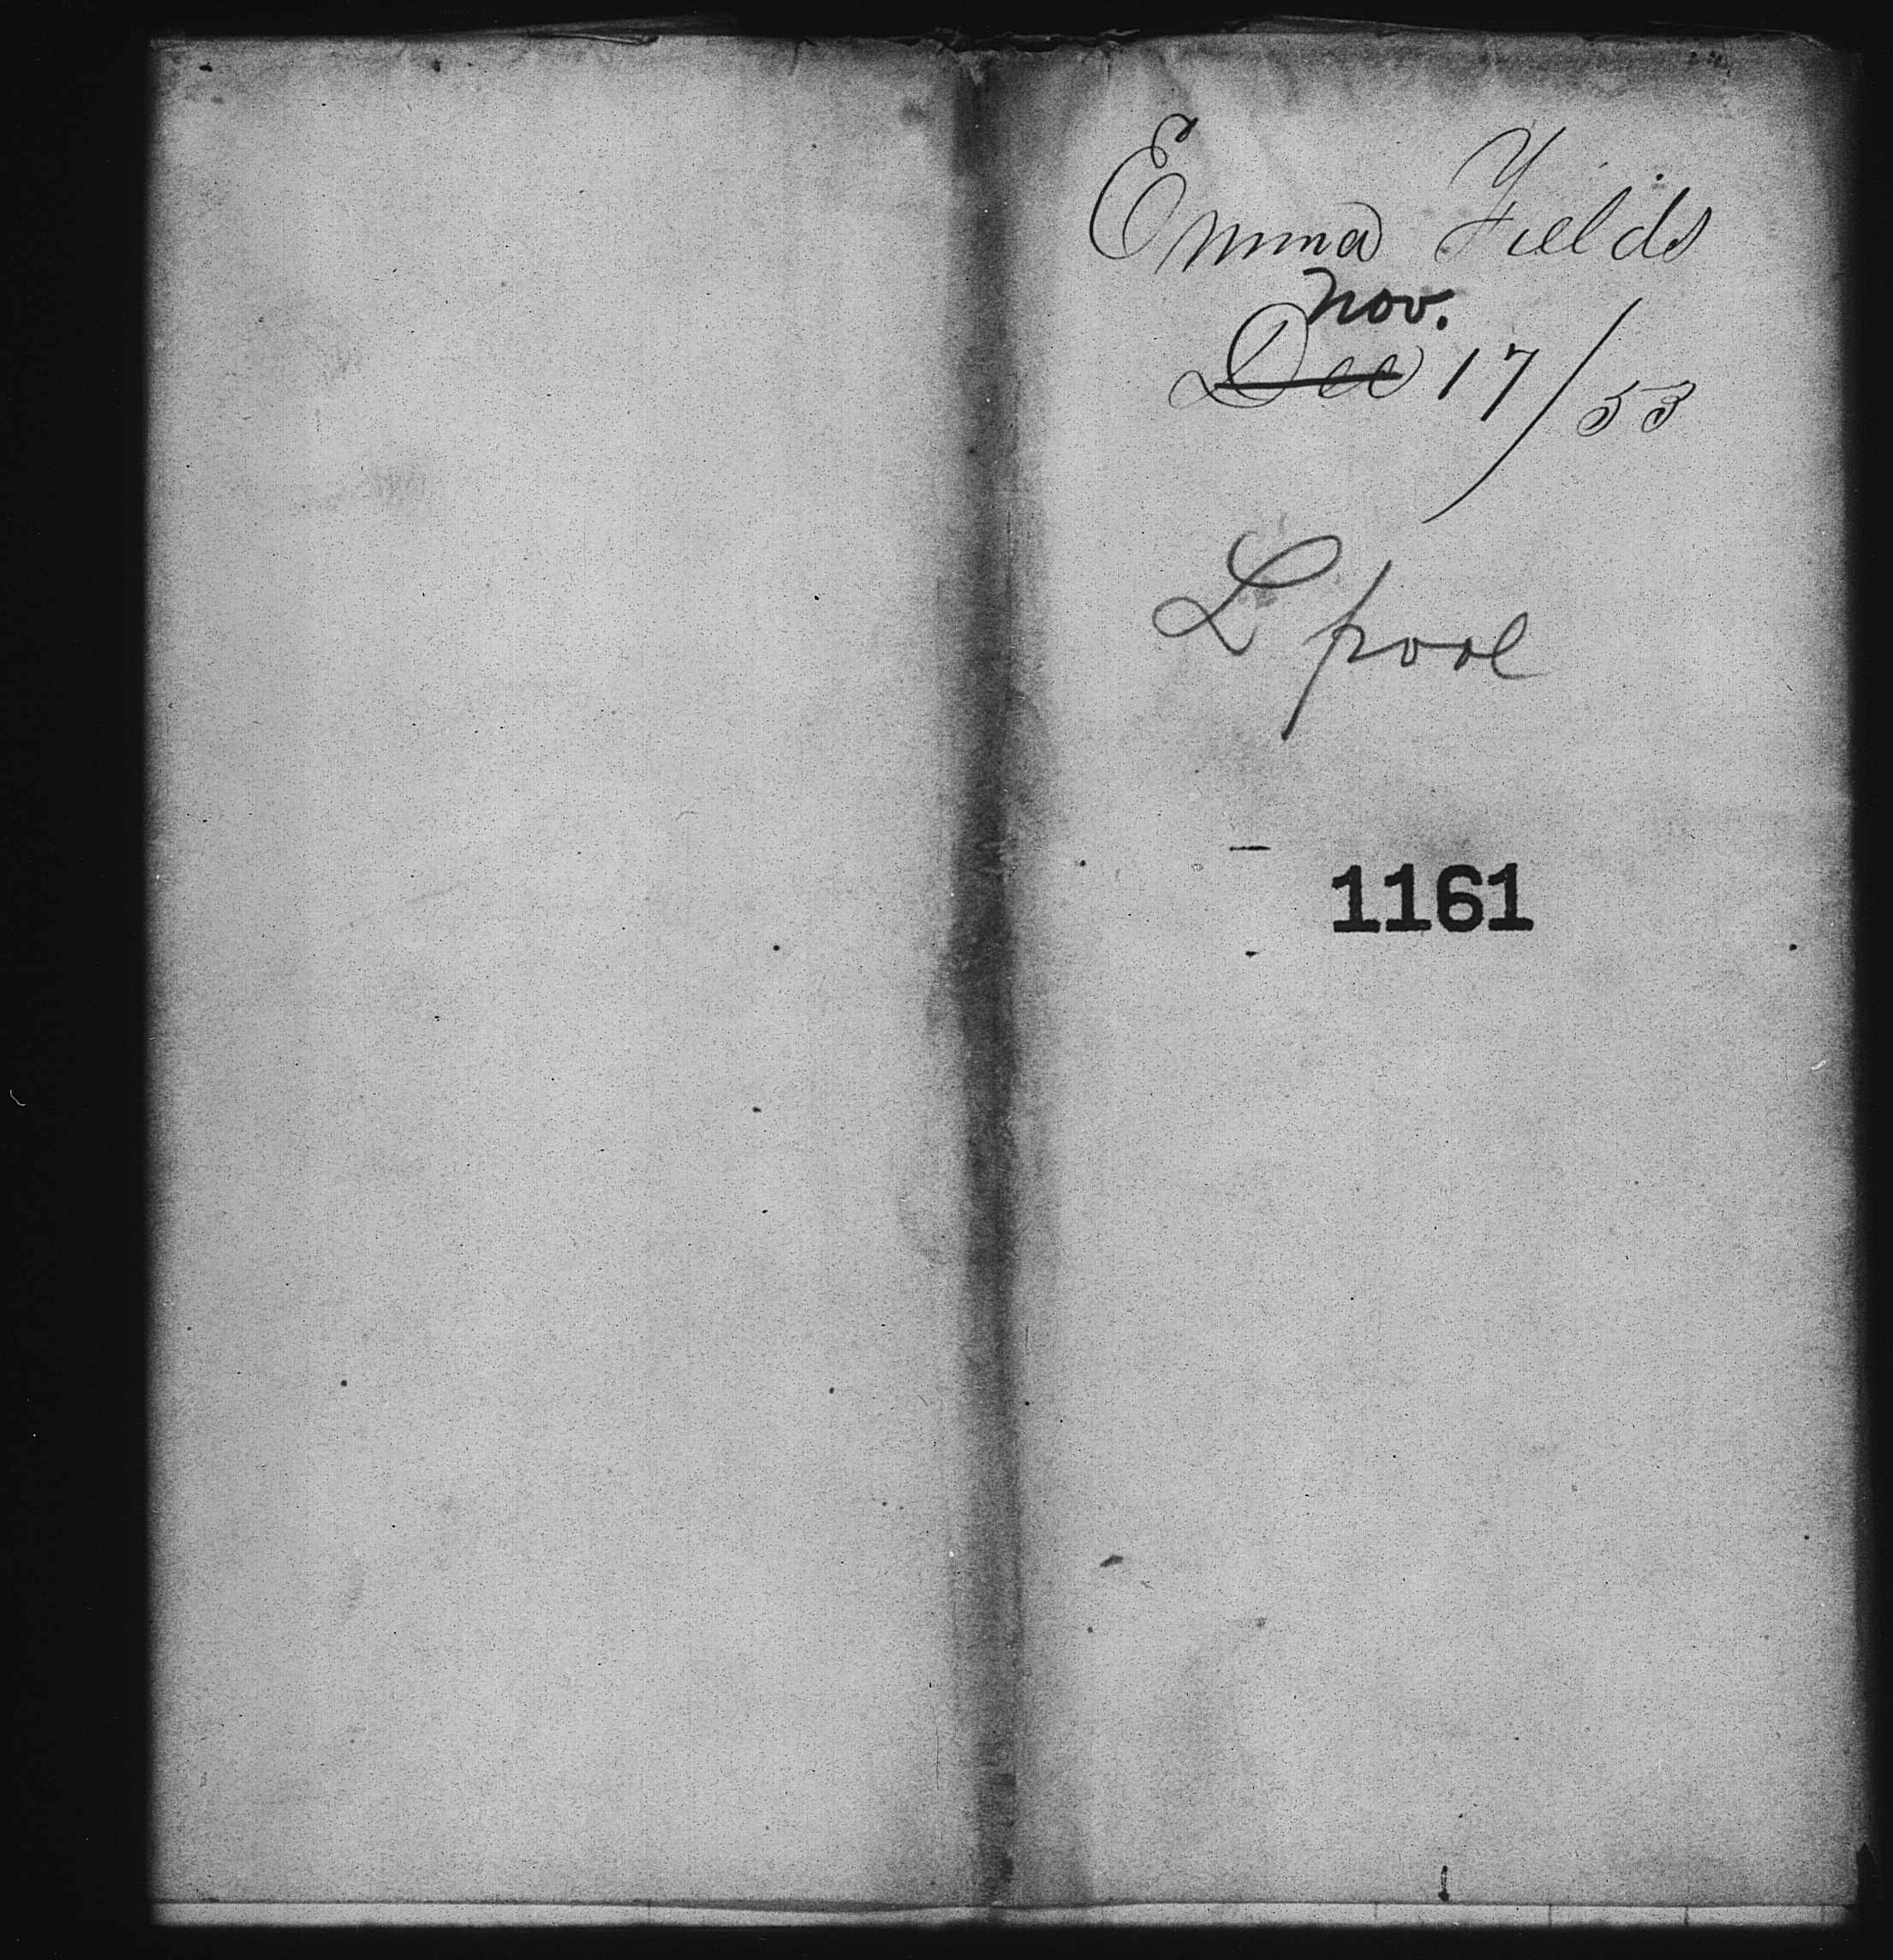 Emma Fields
Nov.
Dec 17/53
L pool
1161